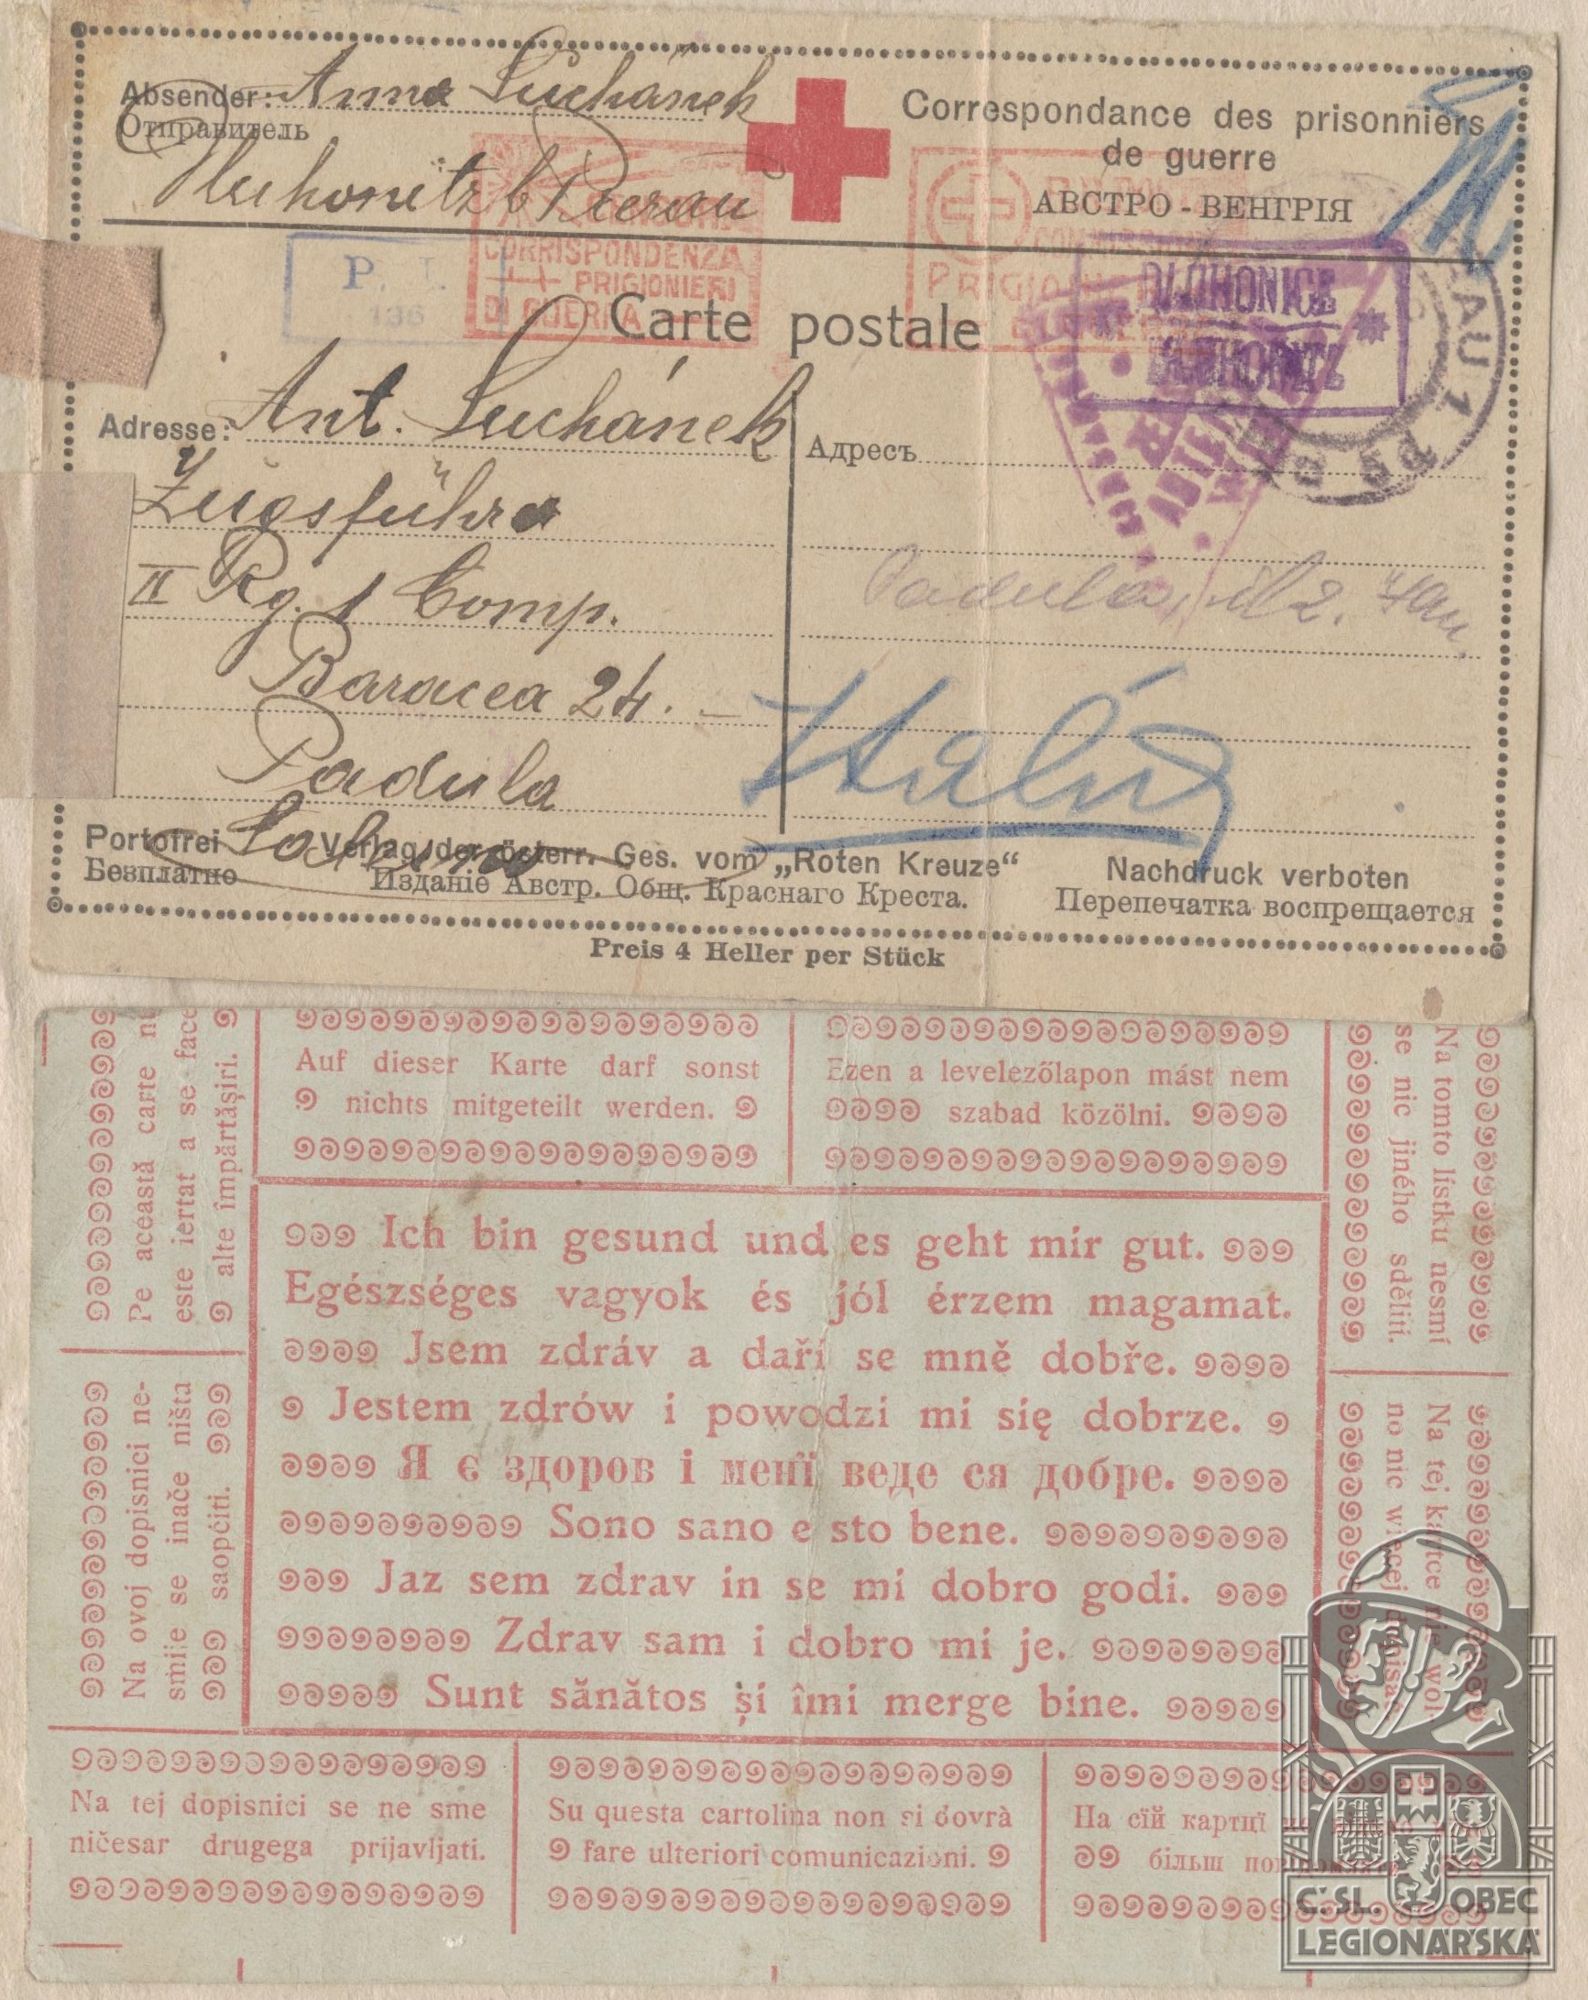 Absender: Anna Suchánek
Отправитель
Correspondance des prisonniers
de guerre
АВСТРО - ВЕНГРІЯ
CORRISPONDENZA
PRIGIONIERI
DI GUERRA
P. I.
136
Carte postale
DLUHONICE
Adresse: Ant. Suchánek
Адресъ
Zugsführer
II Rg. 1 Comp.
Baracca 24.
Padula
Padula
Portofrei
Verlag der österr. Ges. vom „Roten Kreuze“
Nachdruck verboten
Безплатно
Изданіе Австр. Общ. Краснаго Креста.
Перепечатка воспрещается
Preis 4 Heller per Stück
Auf dieser Karte darf sonst
nichts mitgeteilt werden.
Ezen a levelezőlapon mást nem
szabad közölni.
Pe această carte nu
este iertat a se face
alte împărtăşiri.
Na tomto lístku nesmí
se nic jiného sděliti.
Ich bin gesund und es geht mir gut.
Egészséges vagyok és jól érzem magamat.
Jsem zdráv a daří se mně dobře.
Jestem zdrów i powodzi mi się dobrze.
Я є здоров і менї веде ся добре.
Sono sano e sto bene.
Jaz sem zdrav in se mi dobro godi.
Zdrav sam i dobro mi je.
Sunt sănătos şi îmi merge bine.
Na ovoj dopisnici ne-
smije se inače ništa
saopćiti.
Na tej kartce nie wol
no nic więcej dopisać.
Na tej dopisnici se ne sme
ničesar drugega prijavljati.
Su questa cartolina non si dovrà
fare ulteriori comunicazioni.
На сїй картцї
більш
Č. SL. OBEC
LEGIONÁŘSKÁ